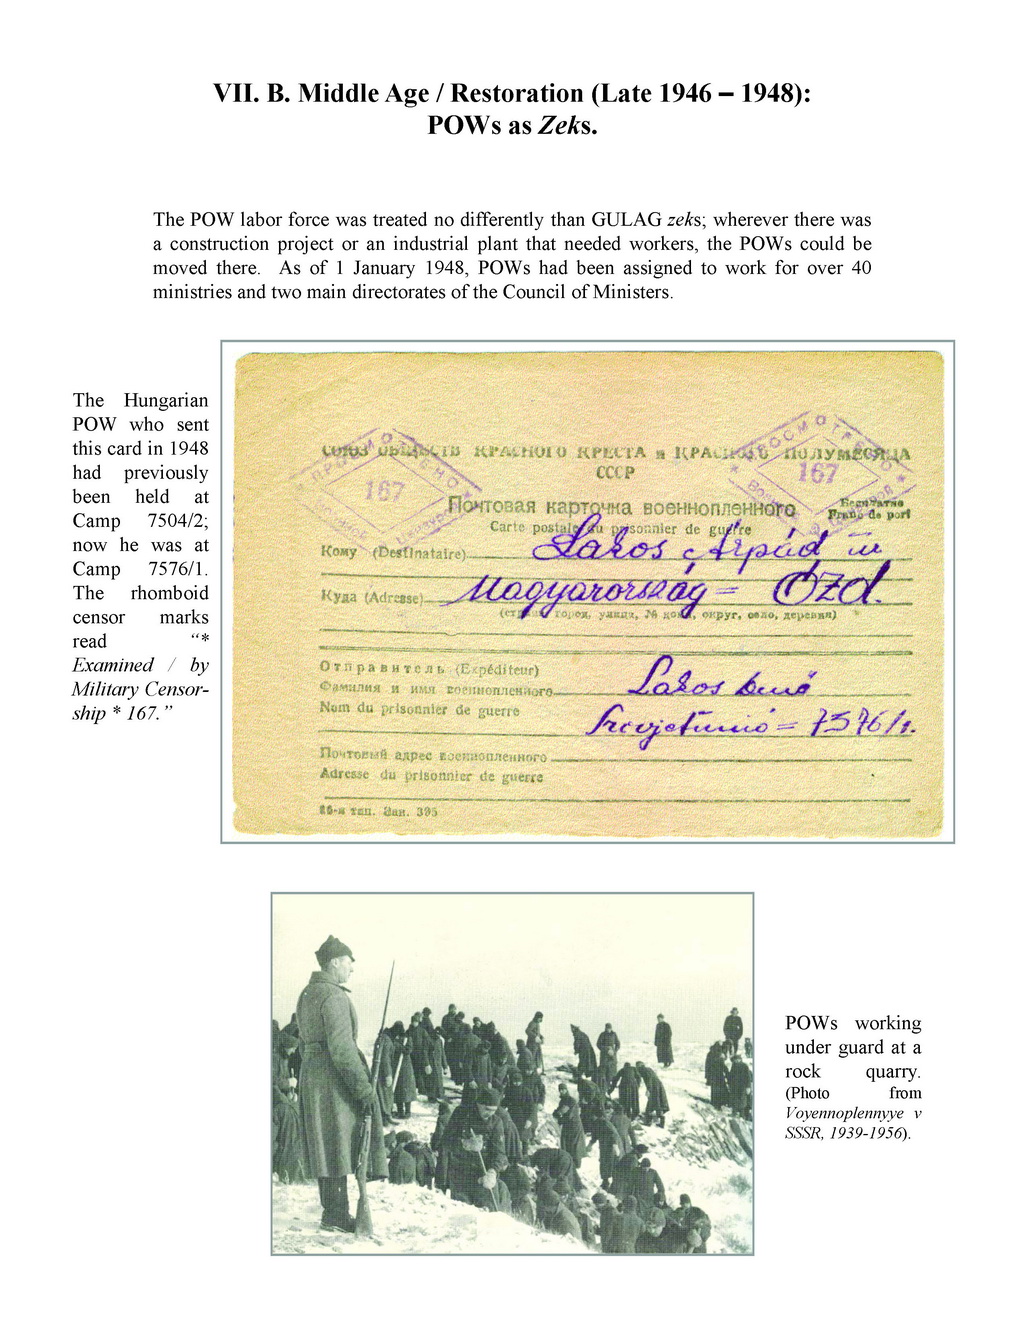 VII. B. Middle Age / Restoration (Late 1946 – 1948):
POWs as Zeks.
The POW labor force was treated no differently than GULAG zeks; wherever there was
a construction project or an industrial plant that needed workers, the POWs could be
moved there. As of 1 January 1948, POWs had been assigned to work for over 40
ministries and two main directorates of the Council of Ministers.
The Hungarian
POW who sent
this card in 1948
had previously
been held at
Camp 7504/2;
now he was at
Camp 7576/1.
The rhomboid
censor marks
read “*
Examined / by
Military Censor-
ship * 167.”
СОЮЗ ОБЩЕСТВ КРАСНОГО КРЕСТА и КРАСНОГО ПОЛУМЕСЯЦА
СССР
ПРОСМОТРЕНО
167
ПРОСМОТРЕНО
167
Почтовая карточка военнопленного
Бесплатно
Carte postale du prisonnier de guerre
Franc de port
Кому (Destinataire) Lakos Árpád úr
Куда (Adresse) Magyarország = Ózd.
(страна, город, улица, № дома, округ, село, деревня)
Отправитель (Expéditeur)
Фамилия и имя военнопленного Lakos Jenő
Nom du prisonnier de guerre
Szovjetunió = 7576/1.
Почтовый адрес военнопленного
Adresse du prisonnier de guerre
тип. Зак. 395
POWs working
under guard at a
rock quarry.
(Photo from
Voyennoplennyye v
SSSR, 1939-1956).